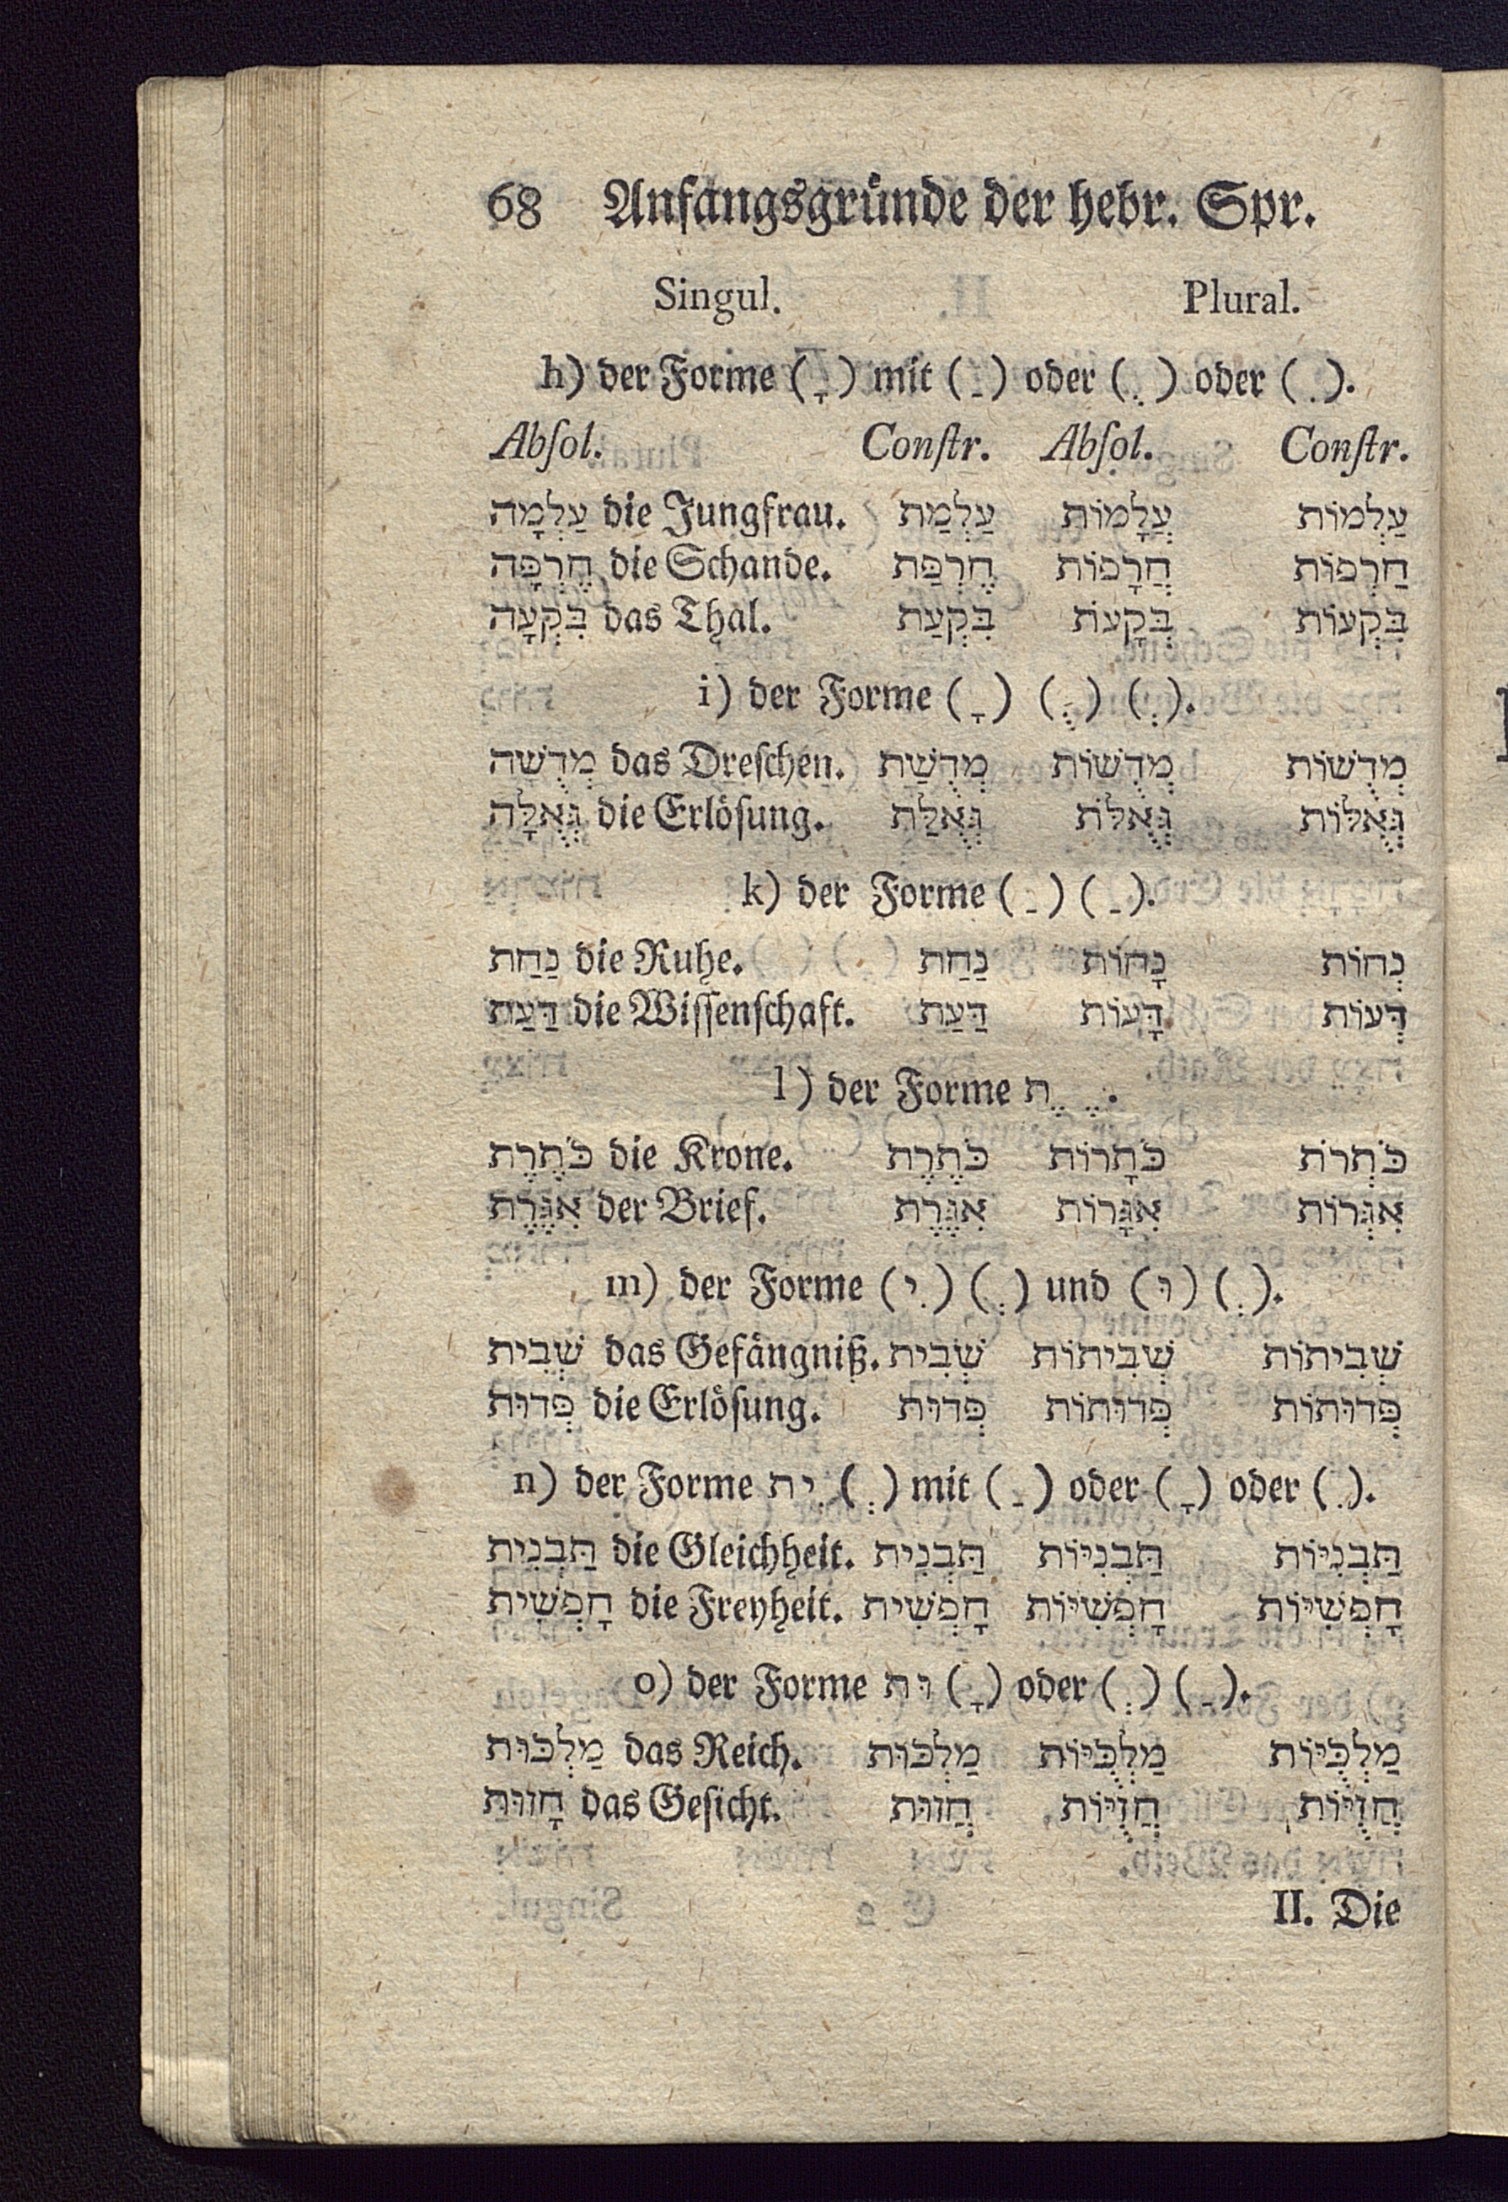 68 Anfangsgründe der hebr. Spr.
Singul. Plural.
h) der Forme ( ָ ) mit ( ַ ) oder ( ֶ ) oder ( ִ ).
Abſol. Conſtr. Abſol. Conſtr.
עַלְמָה die Jungfrau. עַלְמַת עֲלָמוֹת עַלְמוֹת
חֶרְפָּה die Schande. חֶרְפַּת חֲרָפוֹת חַרְפוֹת
בִּקְעָה das Thal. בִּקְעַת בְּקָעֹת בִּקְעוֹת
i) der Forme ( ָ ) ( ֻ ) ( ְ ).
מְדֻשָׁה das Dreſchen. מְדֻשַׁת מְדֻשׁוֹת מְדֻשׁוֹת
גְּאֻלָּה die Erlöſung. גְּאֻלַּת גְּאֻלֹּת גְּאֻלּוֹת
k) der Forme ( ַ ) ( ַ ).
נַחַת die Ruhe. נַחַת נָחוֹת נְחוֹת
דַּעַת die Wiſſenſchaft. דַּעַת דָּעוֹת דְּעוֹת
l) der Forme ֶ ֶ ת.
כֹּתֶרֶת die Krone. כֹּתֶרֶת כֹּתָרוֹת כֹּתְרֹת
אִגֶּרֶת der Brief. אִגֶּרֶת אִגָּרוֹת אִגְּרוֹת
m) der Forme ( ִי) ( ְ ) und (וּ) ( ְ ).
שְׁבִית das Gefängniß. שְׁבִית שְׁבִיתוֹת שְׁבִיתוֹת
פְּדוּת die Erlöſung. פְּדוּת פְּדוּתוֹת פְּדוּתוֹת
n) der Forme ִית ( ְ ) mit ( ַ ) oder ( ָ ) oder ( ִ ).
תַּבְנִית die Gleichheit. תַּבְנִית תַּבְנִיּוֹת תַּבְנִיּוֹת
חָפְשִׁית die Freyheit. חָפְשִׁית חָפְשִׁיּוֹת חָפְשִׁיּוֹת
o) der Forme וּת ( ָ ) oder ( ְ ) ( ַ ).
מַלְכּוּת das Reich. מַלְכּוּת מַלְכֻיּוֹת מַלְכֻיּוֹת
חָזוּת das Geſicht. חֲזוּת חֲזֻיּוֹת חֲזֻיּוֹת
II. Die